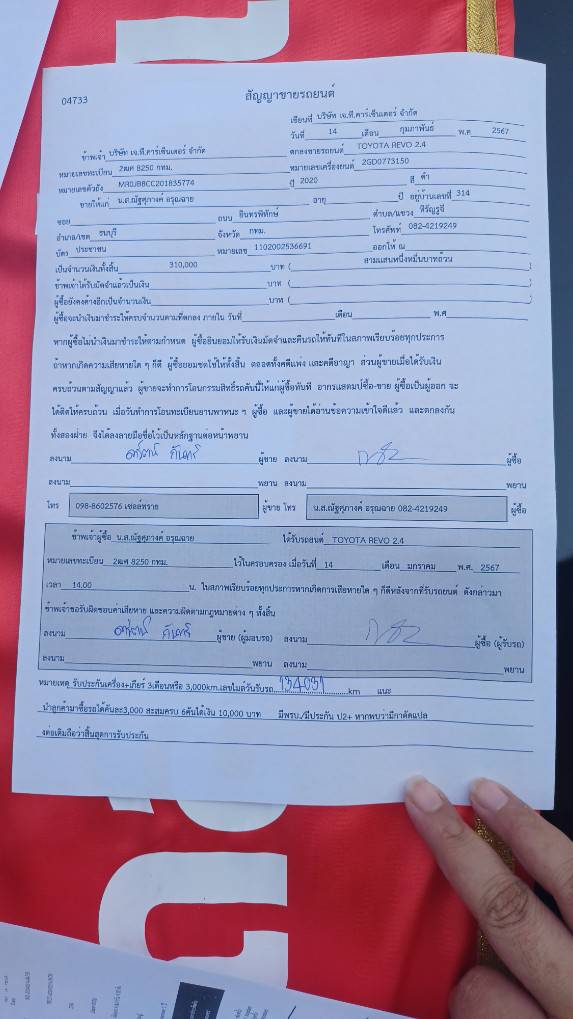 04733
สัญญาขายรถยนต์
เขียนที่ บริษัท เจ.ที.คาร์เซ็นเตอร์ จำกัด
วันที่ 14 เดือน กุมภาพันธ์ พ.ศ 2567
ข้าพเจ้า บริษัท เจ.ที.คาร์เซ็นเตอร์ จำกัด ตกลงขายรถยนต์ TOYOTA REVO 2.4
หมายเลขทะเบียน 2ฒศ 8250 กทม. หมายเลขเครื่องยนต์ 2GD0773150
หมายเลขตัวถัง MR0JB8CC201835774 ปี 2020 สี ดำ
ขายให้แก่ น.ส.ณัฐศุภางค์ อรุณฉาย อายุ ปี อยู่บ้านเลขที่ 314
ซอย ถนน อินทรพิทักษ์ ตำบล/แขวง หิรัญรูจี
อำเภอ/เขต ธนบุรี จังหวัด กทม. โทรศัพท์ 082-4219249
บัตร ประชาชน หมายเลข 1102002536691 ออกให้ ณ
เป็นจำนวนเงินทั้งสิ้น 310,000 บาท ( สามแสนหนึ่งหมื่นบาทถ้วน )
ข้าพเจ้าได้รับมัดจำแล้วเป็นเงิน บาท ( )
ผู้ซื้อยังคงค้างอีกเป็นจำนวนเงิน บาท ( )
ผู้ซื้อจะนำเงินมาชำระให้ครบจำนวนตามที่ตกลง ภายใน วันที่ เดือน พ.ศ
หากผู้ซื้อไม่นำเงินมาชำระให้ตามกำหนด ผู้ซื้อยินยอมให้ริบเงินมัดจำและคืนรถให้ทันทีในสภาพเรียบร้อยทุกประการ
ถ้าหากเกิดความเสียหายใด ๆ ก็ดี ผู้ซื้อยอมชดใช้ให้ทั้งสิ้น ตลอดทั้งคดีแพ่ง และคดีอาญา ส่วนผู้ขายเมื่อได้รับเงิน
ครบถ้วนตามสัญญาแล้ว ผู้ขายจะทำการโอนกรรมสิทธิ์รถคันนี้ให้แก่ผู้ซื้อทันที อากรแสตมป์ซื้อ-ขาย ผู้ซื้อเป็นผู้ออก จะ
ได้คิดให้ครบถ้วน เมื่อวันทำการโอนทะเบียนยานพาหนะ ฯ ผู้ซื้อ และผู้ขายได้อ่านข้อความเข้าใจดีแล้ว และตกลงกัน
ทั้งสองฝ่าย จึงได้ลงลายมือชื่อไว้เป็นหลักฐานต่อหน้าพยาน
ลงนาม ผู้ขาย ลงนาม ผู้ซื้อ
ลงนาม พยาน ลงนาม พยาน
โทร 098-8602576 เซลล์ทราย ผู้ขาย โทร น.ส.ณัฐศุภางค์ อรุณฉาย 082-4219249 ผู้ซื้อ
ข้าพเจ้าผู้ซื้อ น.ส.ณัฐศุภางค์ อรุณฉาย ได้รับรถยนต์ TOYOTA REVO 2.4
หมายเลขทะเบียน 2ฒศ 8250 กทม. ไว้ในครอบครอง เมื่อวันที่ 14 เดือน มกราคม พ.ศ. 2567
เวลา 14.00 น. ในสภาพเรียบร้อยทุกประการหากเกิดการเสียหายใด ๆ ก็ดีหลังจากที่รับรถยนต์ ดังกล่าวมา
ข้าพเจ้าขอรับผิดชอบค่าเสียหาย และความผิดตามกฎหมายต่าง ๆ ทั้งสิ้น
ลงนาม ผู้ขาย (ผู้มอบรถ) ลงนาม ผู้ซื้อ (ผู้รับรถ)
ลงนาม พยาน ลงนาม พยาน
หมายเหตุ รับประกันเครื่อง+เกียร์ 3เดือนหรือ 3,000km.เลขไมล์วันรับรถ 134031 km แนะ
นำลูกค้ามาซื้อรถได้คันละ3,000 สะสมครบ 6คันได้เงิน 10,000 บาท มีพรบ./มีประกัน ป2+ หากพบว่ามีการดัดแปลง
งต่อเติมถือว่าสิ้นสุดการรับประกัน